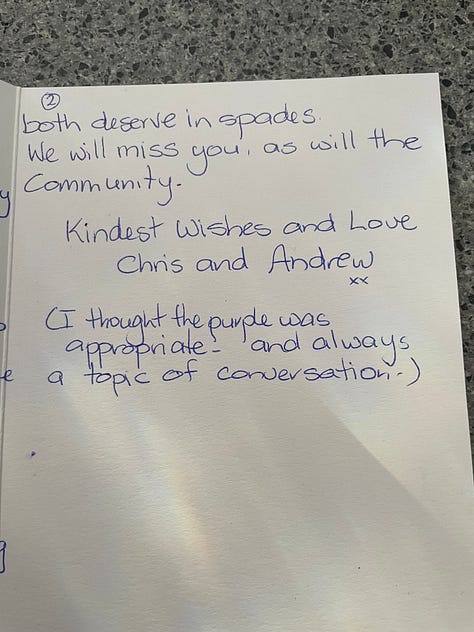 ②
both deserve in spades.
We will miss you, as will the
Community.
Kindest Wishes and Love
Chris and Andrew
xx
(I thought the purple was
appropriate - and always
a topic of conversation.)